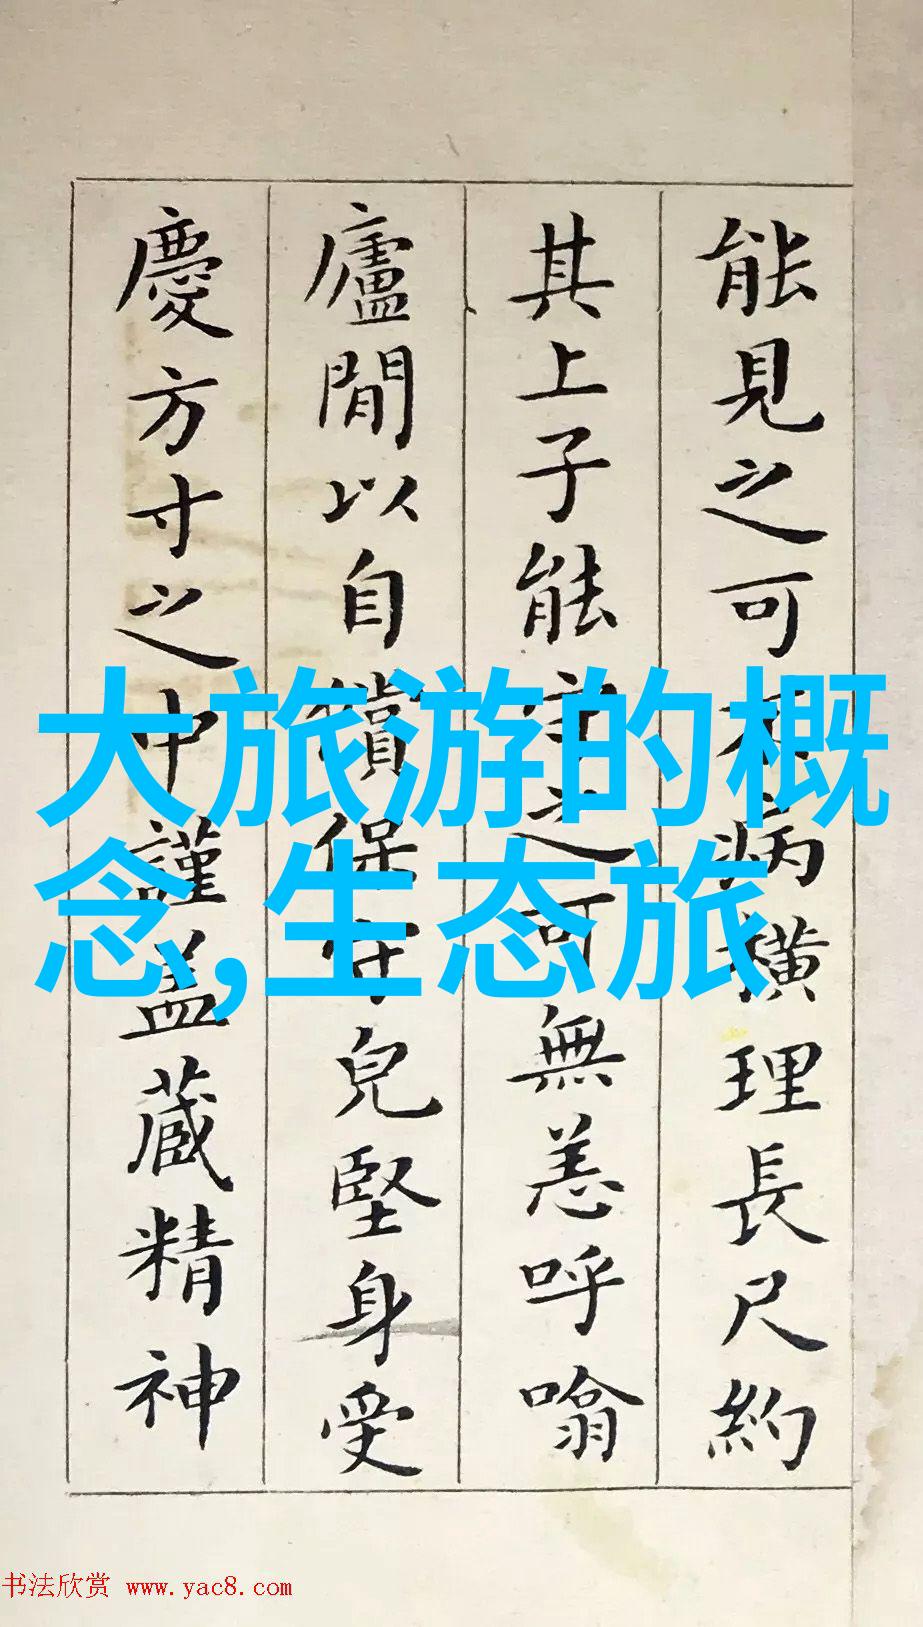 能見之可不病橫理長尺約
其上子能守之可無恙呼噏
廬閒以自償保守兒堅身受
慶方寸之中謹盖藏精神
大旅游的概
念,生态旅
书法欣赏 www.yac8.com